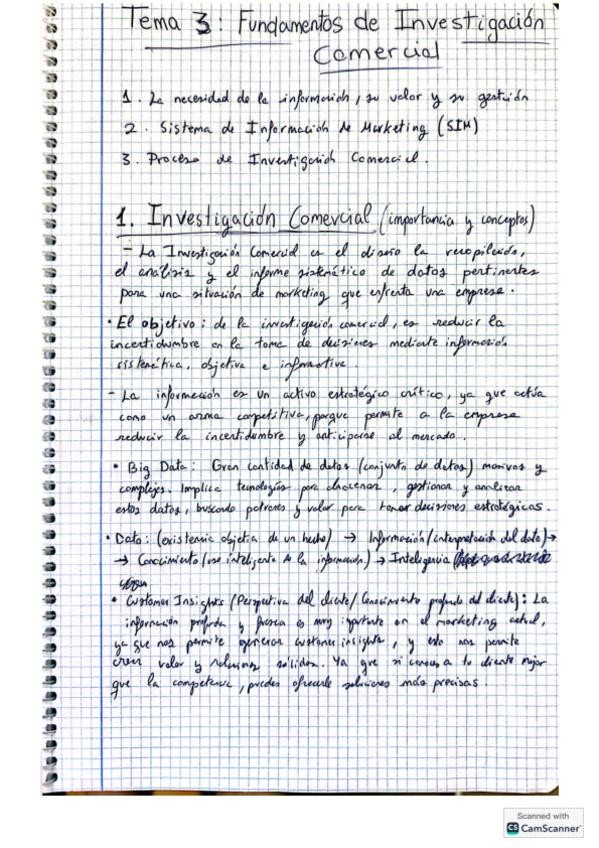 Tema 3: Fundamentos de Investigación
Comercial
1. La necesidad de la información, su valor y su gestión
2. Sistema de Información de Marketing (SIM)
3. Proceso de Investigación Comercial.
1. Investigación Comercial (importancia y conceptos)
- La Investigación Comercial es el diseño la recopilación,
el análisis y el informe sistemático de datos pertinentes
para una situación de marketing que enfrenta una empresa.
• El objetivo: de la investigación comercial, es reducir la
incertidumbre en la toma de decisiones mediante información
sistemática, objetiva e informativa.
- La información es un activo estratégico crítico, ya que actúa
como un arma competitiva, porque permite a la empresa
reducir la incertidumbre y anticiparse al mercado.
• Big Data: Gran cantidad de datos (conjunto de datos) masivos y
complejos. Implica tecnologías para almacenar, gestionar y analizar
estos datos, buscando patrones y valor para tomar decisiones estratégicas.
• Dato: (existencia objetiva de un hecho) → Información (interpretación del dato) →
→ Conocimiento (uso inteligente de la información) → Inteligencia
• Customer Insights (Perspectiva del cliente/Conocimiento profundo del cliente): La
información profunda y fresca es muy importante en el marketing actual,
ya que nos permite generar customer insights, y esto nos permite
crear valor y relaciones sólidas. Ya que si conoces a tu cliente mejor
que la competencia, puedes ofrecerle soluciones más precisas.
Scanned with
CS CamScanner